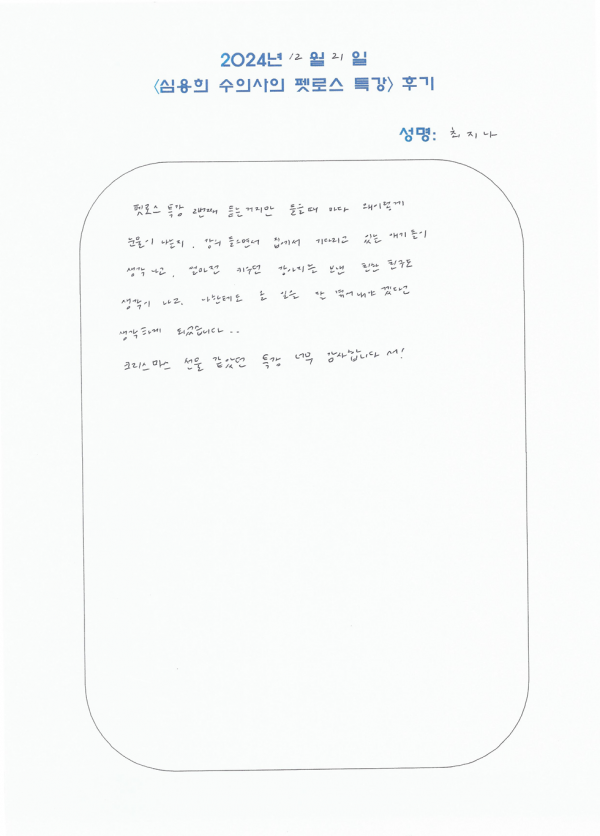 2024년 12월 21일
<심용희 수의사의 펫로스 특강> 후기
성명: 최지나
펫로스 특강 2번째 듣는거지만 들을때 마다 왜이렇게
눈물이 나는지, 강의 들으면서 집에서 기다리고 있는 애기들이
생각나고, 얼마전 키우던 강아지를 보낸 친한 친구도
생각이 나고, 나한테도 올 일은 잘 겪어내야 겠다는
생각하게 되었습니다..
크리스마스 선물 같았던 특강 너무 감사합니다